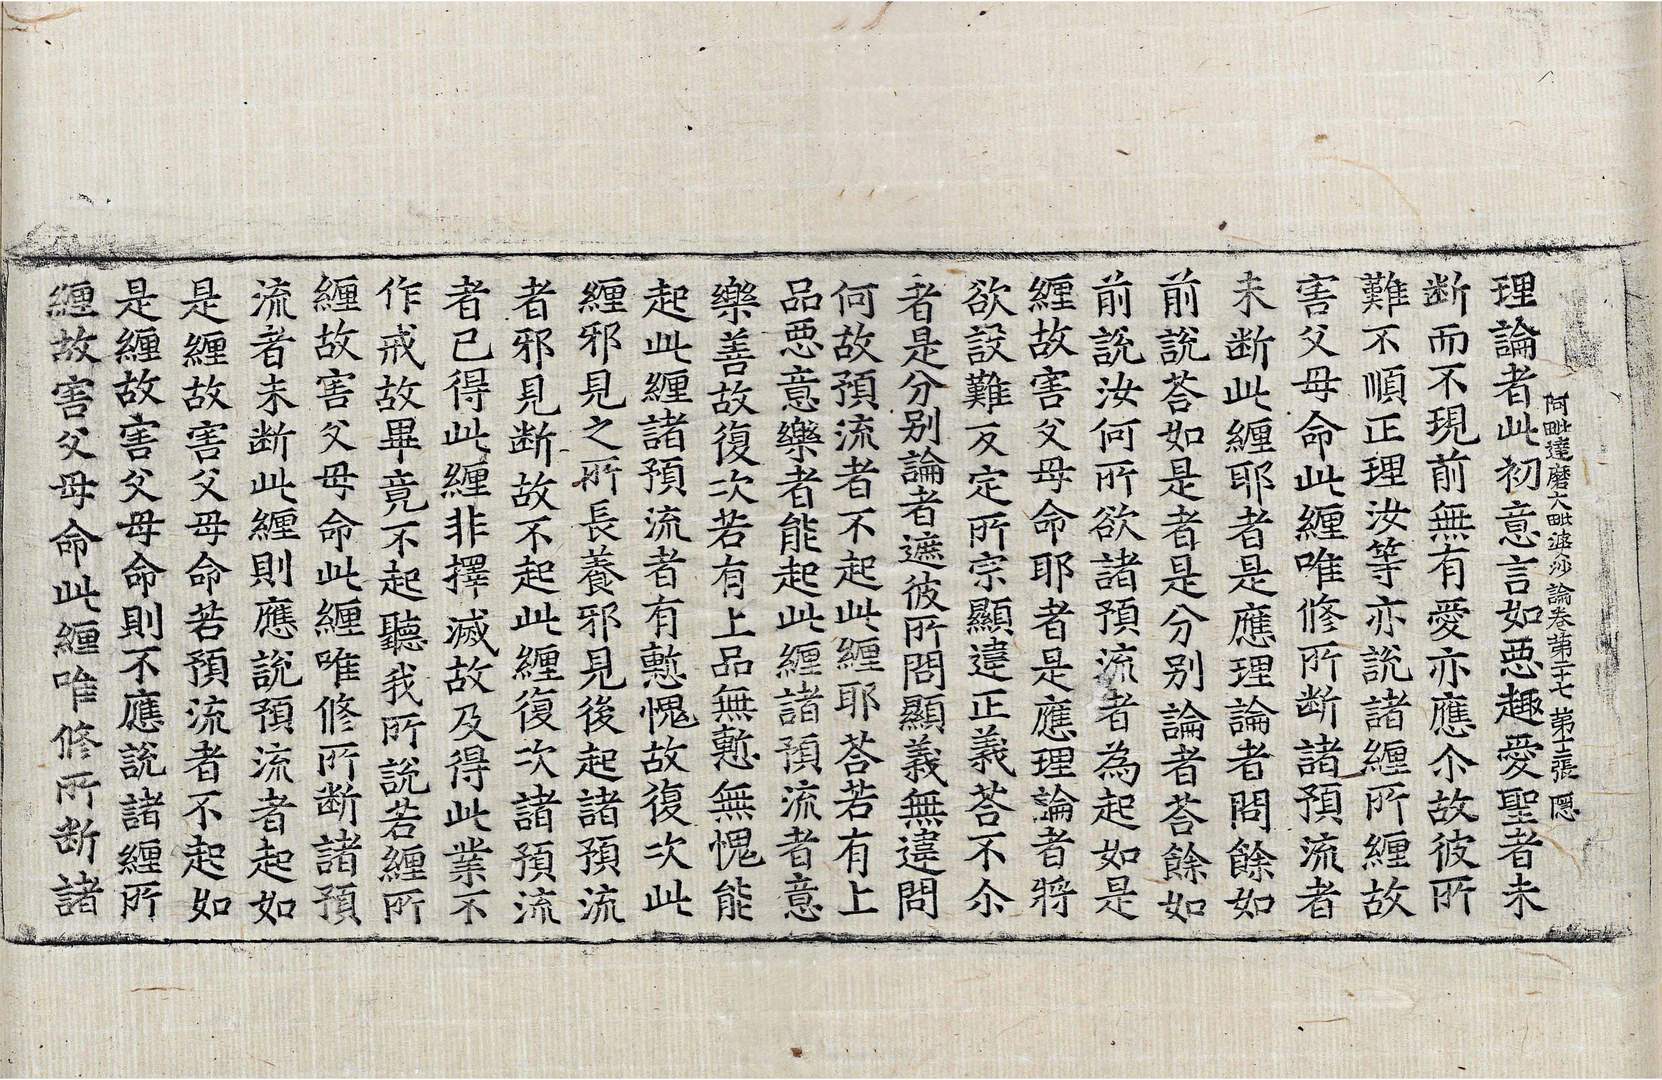 阿毗達磨大毗婆沙論卷第二十七 第十二張 隱
理論者此初意言如惡趣愛聖者未
断而不現前無有愛亦應尒故彼所
難不順正理汝等亦說諸纏所纏故
害父母命此纏唯修所断諸預流者
未断此纏耶者是應理論者問餘如
前說荅如是者是分別論者荅餘如
前說汝何所欲諸預流者為起如是
纏故害父母命耶者是應理論者將
欲設難反定所宗顯違正義荅不尒
者是分別論者遮彼所問顯義無違問
何故預流者不起此纏耶荅若有上
品惡意樂者能起此纏諸預流者意
樂善故復次若有上品無慙無愧能
起此纏諸預流者有慙愧故復次此
纏邪見之所長養邪見後起諸預流
者邪見断故不起此纏復次諸預流
者已得此纏非擇滅故及得此業不
作戒故畢竟不起聽我所說若纏所
纏故害父母命此纏唯修所断諸預
流者未断此纏則應說預流者起如
是纏故害父母命若預流者不起如
是纏故害父母命則不應說諸纏所
纏故害父母命此纏唯修所断諸